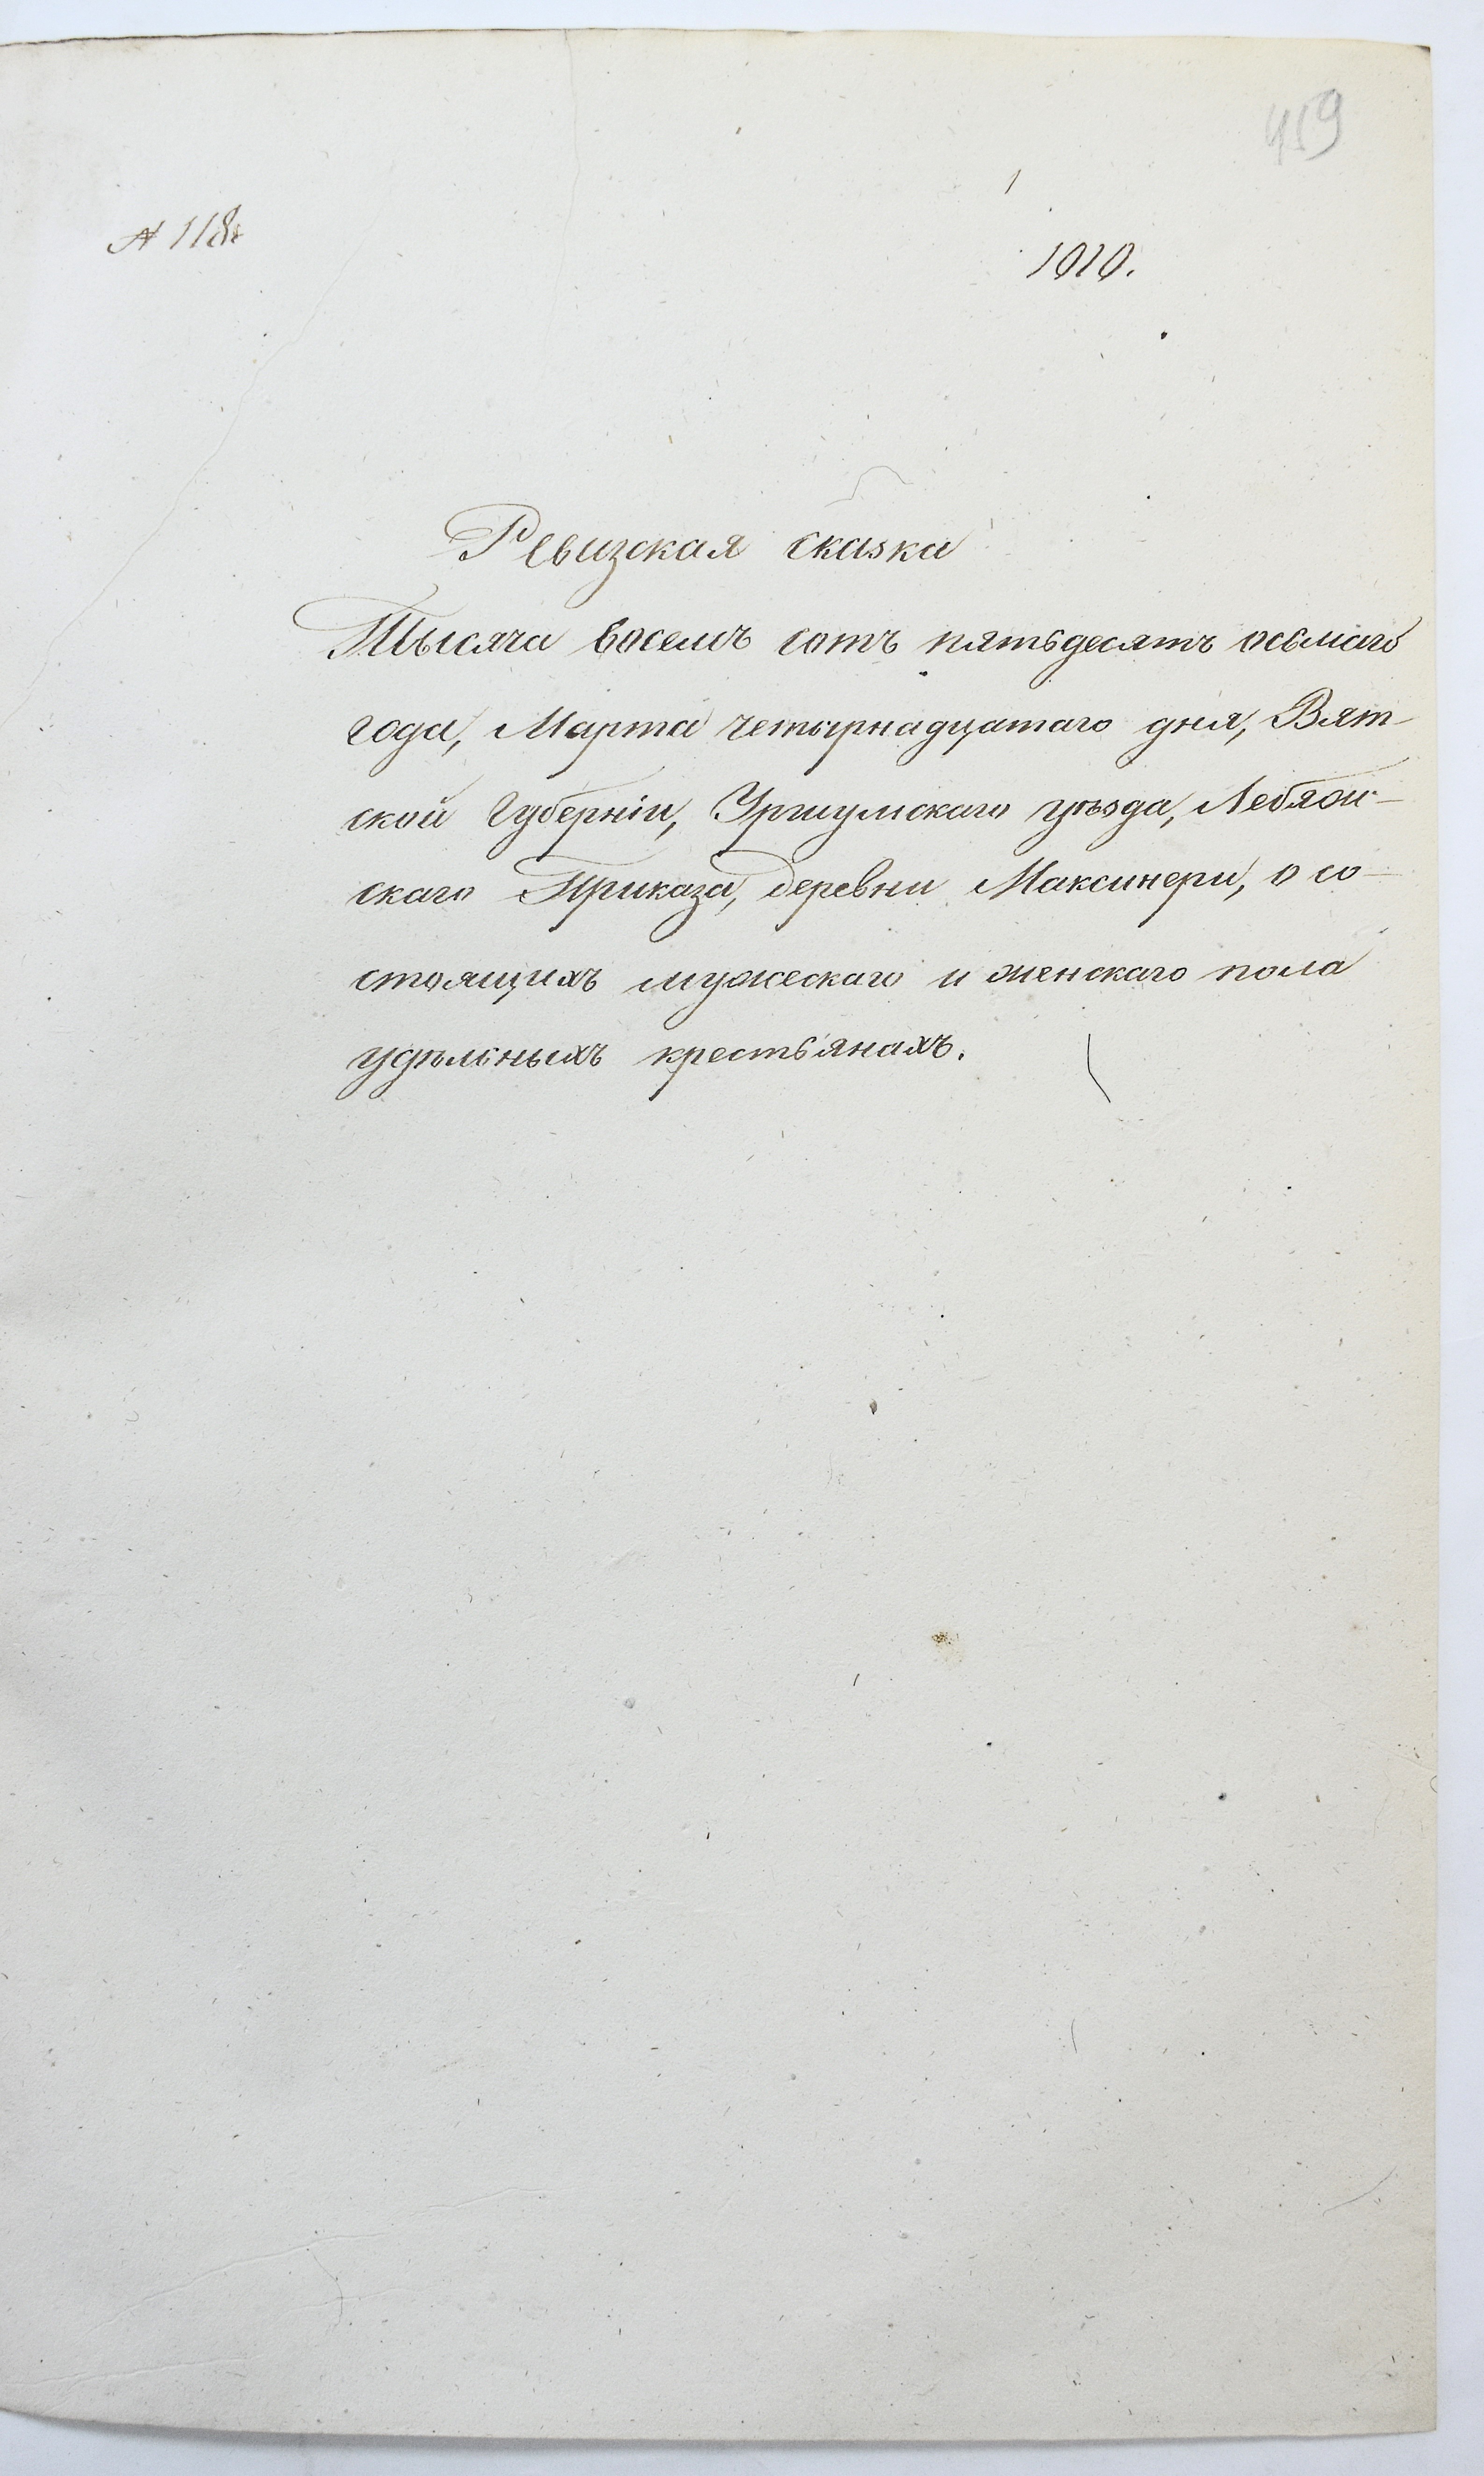 459
№ 118.
1010.
Ревизская сказка
Тысяча восемъ сотъ пятьдесятъ осьмаго
года, Марта четырнадцатаго дня, Вят-
ской Губерніи, Уржумскаго уѣзда, Лебяж-
скаго Приказа, деревни Максинери, о со-
стоящихъ мужескаго и женскаго пола
удѣльныхъ крестьянахъ.